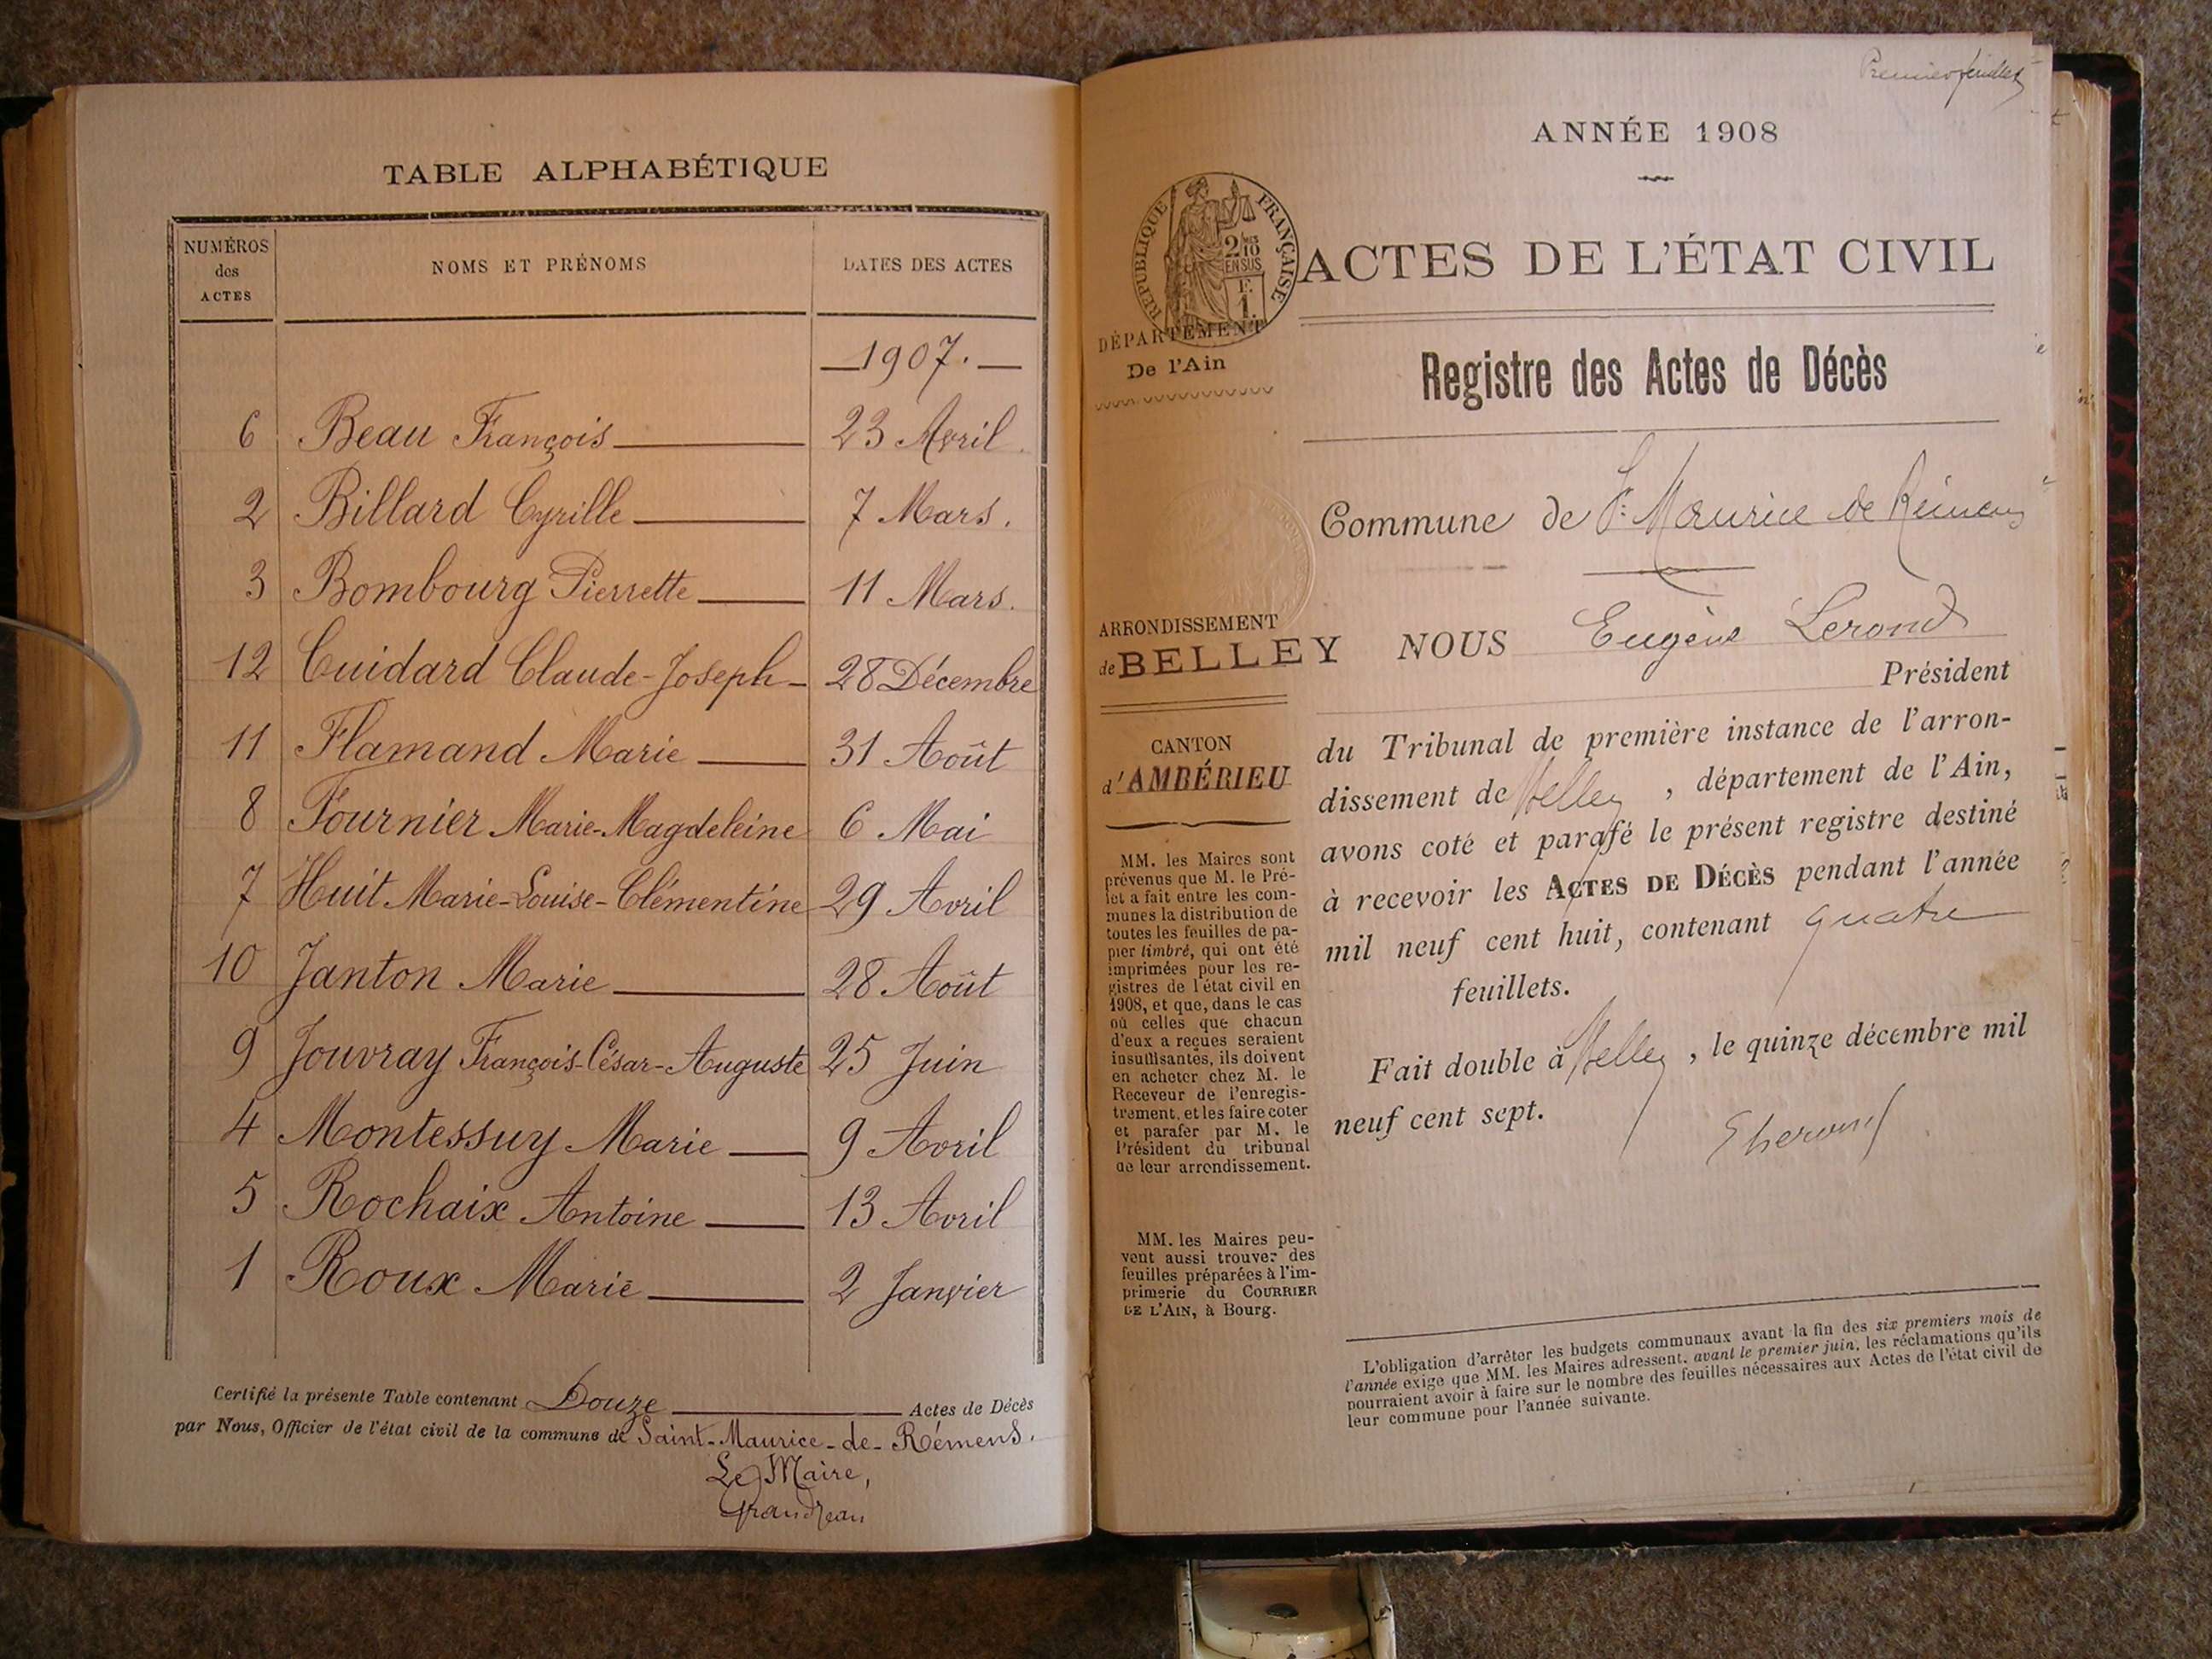 TABLE ALPHABÉTIQUE
NUMÉROS
des
ACTES
NOMS ET PRÉNOMS
DATES DES ACTES
1907.
6 Beau François 23 Avril
2 Billard Cyrille 7 Mars.
3 Bombourg Pierrette 11 Mars.
12 Cuidard Claude-Joseph 28 Décembre
11 Flamand Marie 31 Août
8 Fournier Marie-Magdeleine 6 Mai
7 Huit Marie-Louise-Clémentine 29 Avril
10 Janton Marie 28 Août
9 Jouvray François-César-Auguste 25 Juin
4 Montessuy Marie 9 Avril
5 Rochaix Antoine 13 Avril
1 Roux Marie 2 Janvier
Certifié la présente Table contenant Douze Actes de Décès
par Nous, Officier de l'état civil de la commune de Saint-Maurice-de-Rémens.
Le Maire,
Grandjean
Premier feuillet
ANNÉE 1908
RÉPUBLIQUE FRANÇAISE
2/10
EN SUS
F.
1.
ACTES DE L'ÉTAT CIVIL
DÉPARTEMENT
De l'Ain
Registre des Actes de Décès
Commune de St Maurice de Rémens
ARRONDISSEMENT
de BELLEY
NOUS Eugène Lerond
Président
CANTON
d'AMBÉRIEU
du Tribunal de première instance de l'arron-
dissement de Belley, département de l'Ain,
avons coté et parafé le présent registre destiné
à recevoir les ACTES DE DÉCÈS pendant l'année
mil neuf cent huit, contenant quatre
feuillets.
Fait double à Belley, le quinze décembre mil
neuf cent sept.
MM. les Maires sont
prévenus que M. le Pré-
fet a fait entre les com-
munes la distribution de
toutes les feuilles de pa-
pier timbré, qui ont été
imprimées pour les re-
gistres de l'état civil en
1908, et que, dans le cas
où celles que chacun
d'eux a reçues seraient
insuffisantes, ils doivent
en acheter chez M. le
Receveur de l'enregis-
trement, et les faire coter
et parafer par M. le
Président du tribunal
de leur arrondissement.
MM. les Maires peu-
vent aussi trouver des
feuilles préparées à l'im-
primerie du COURRIER
DE L'AIN, à Bourg.
L'obligation d'arrêter les budgets communaux avant la fin des six premiers mois de
l'année exige que MM. les Maires adressent, avant le premier juin, les réclamations qu'ils
pourraient avoir à faire sur le nombre des feuilles nécessaires aux Actes de l'état civil de
leur commune pour l'année suivante.